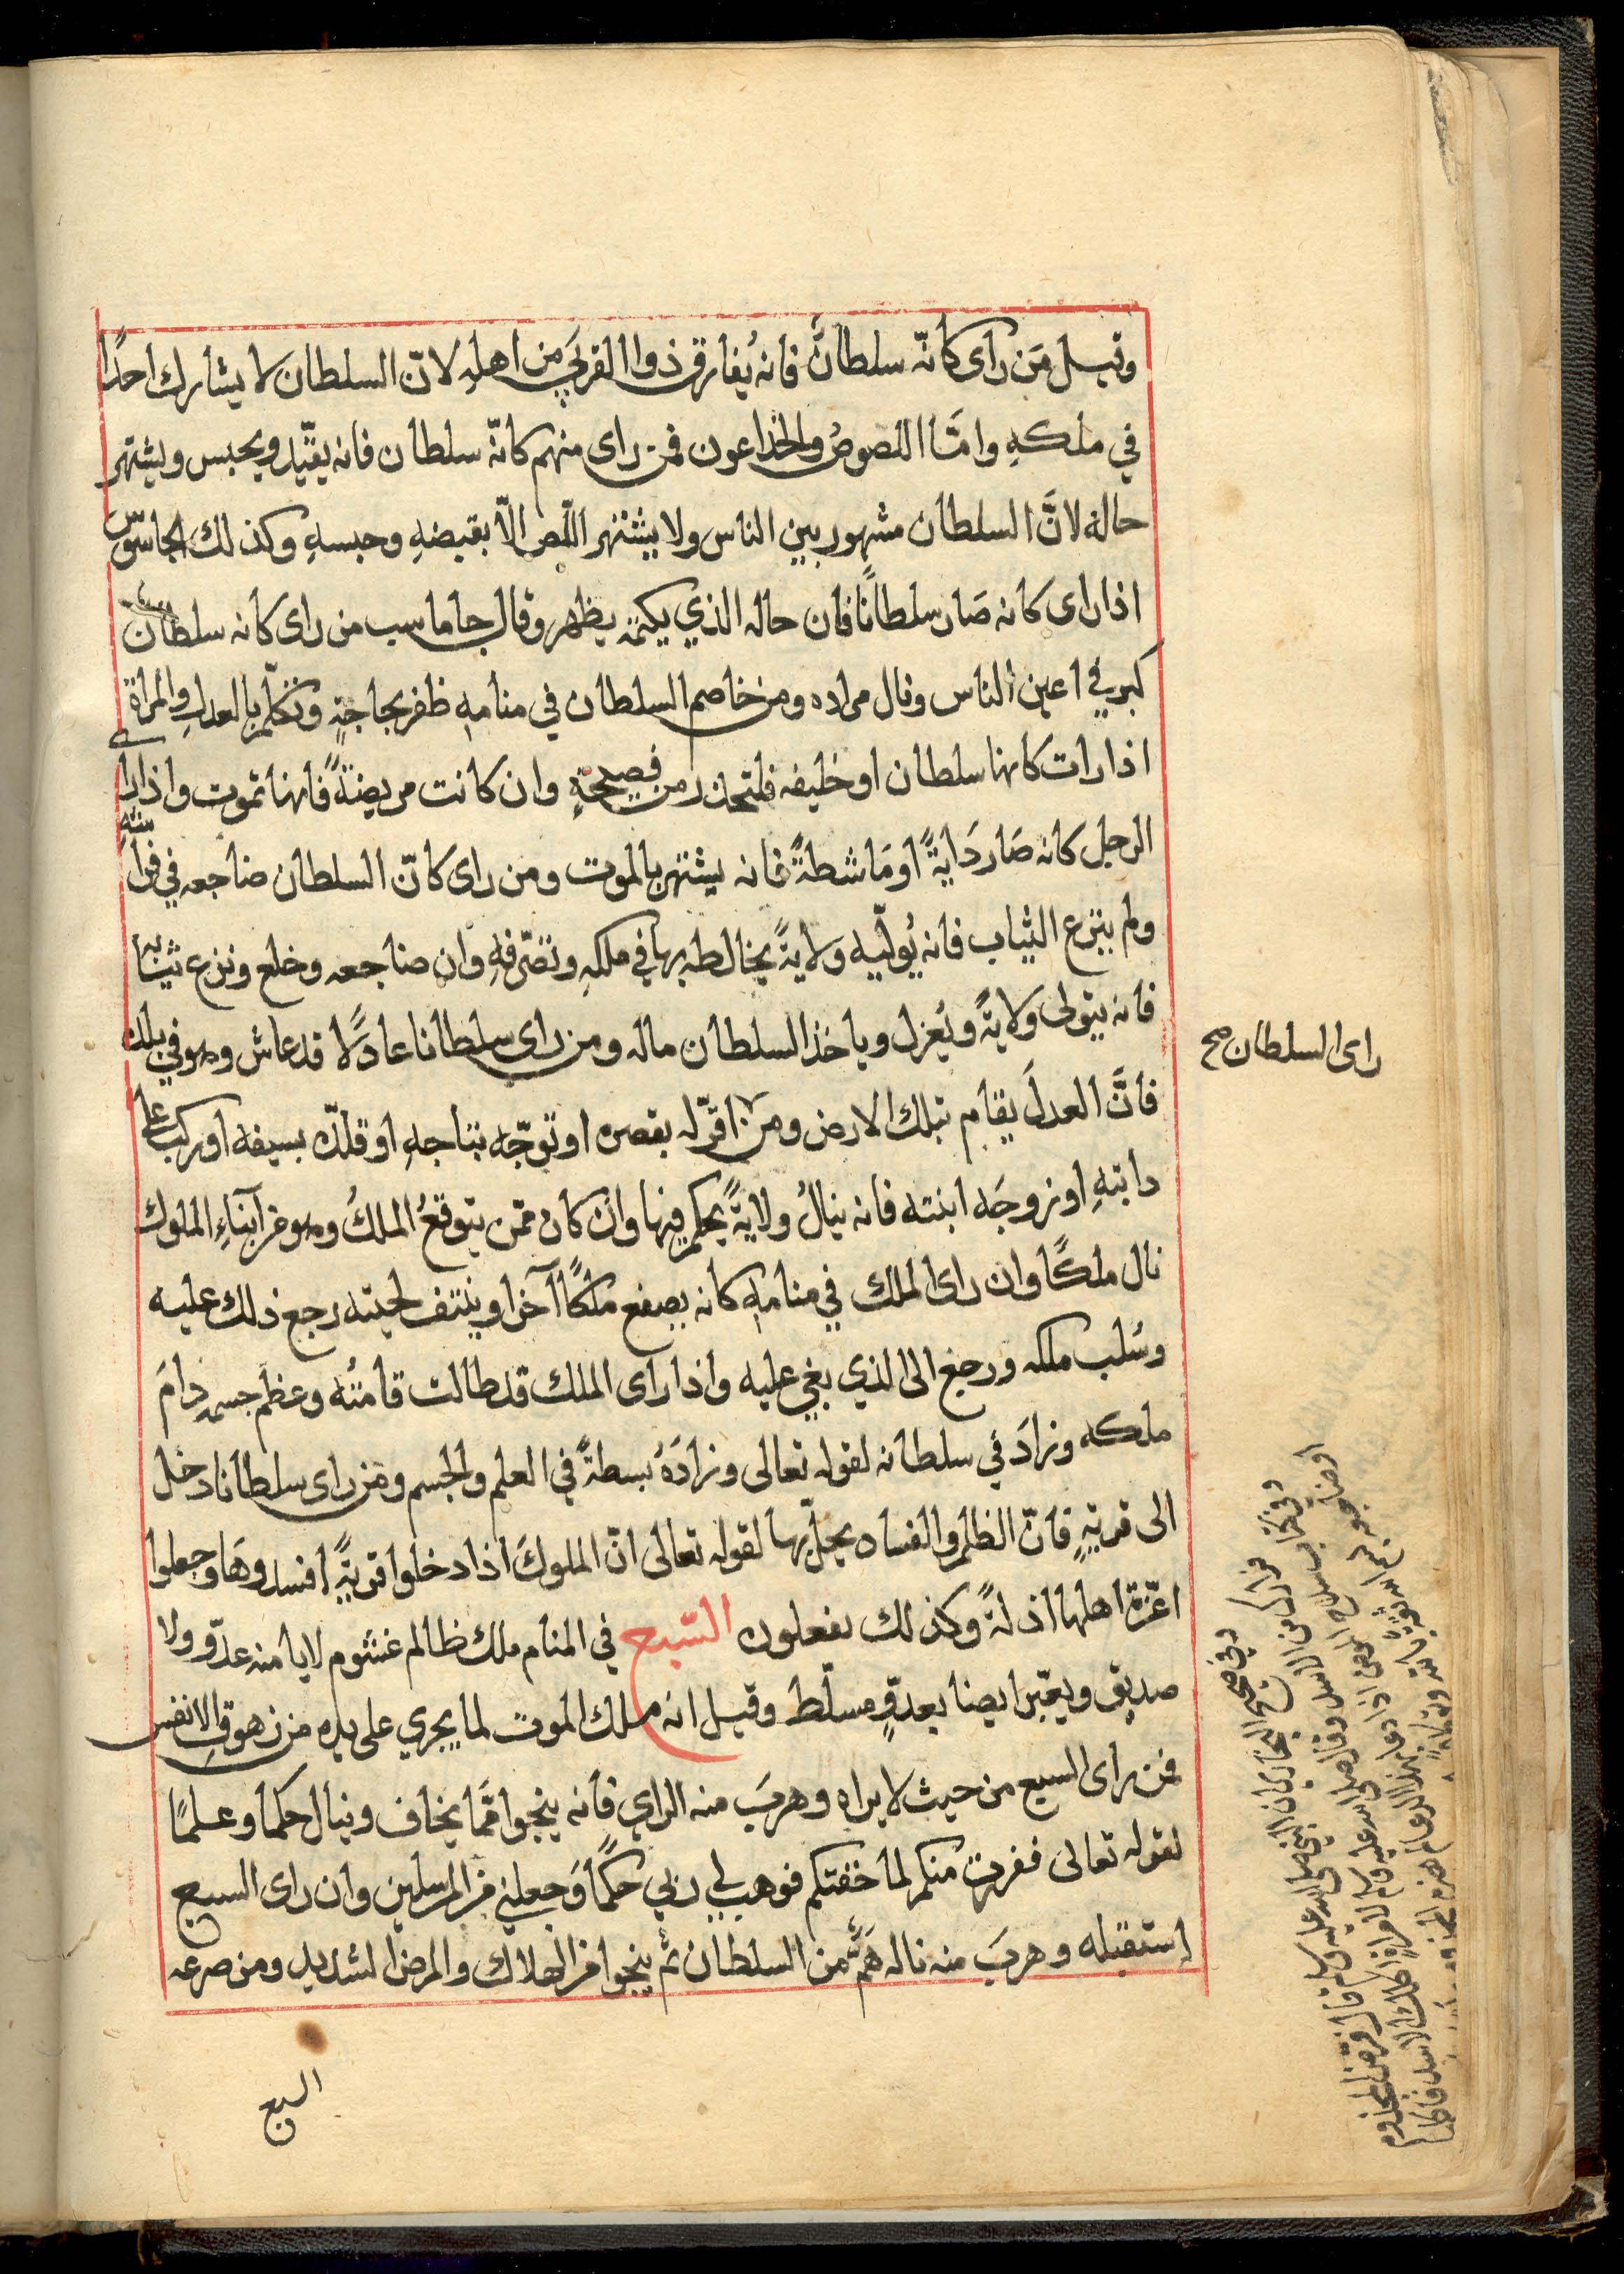 وقيل مَن راى كانّه سلطانٌ فانه يُفارق ذوا القربَي من اهلهِ لانّ السلطان لا يشارك احدًا
في ملكهِ وامَّا اللصوصُ والخداعون فمن راى منهم كانّه سلطان فانه يقيّد ويحبس ويشتهر
حاله لانَّ السلطان مشهور بين الناس ولا يشتهر اللّص الاّ بقبضهِ وحبسهِ وكذلك الجاسوّس
اذا راى كانه صَار سلطانًا فان حاله الذي يكتمه يظهر وقال جاماسب من راى كانه سلطان
كبر في اعين الناس ونال مراده ومن خاصم السلطان في منامهِ ظفر بحاجتهِ وتكلّم بالعدلِ والمراة
اذا رات كانها سلطان او خليفه فلتحذر من فصيحةٍ وان كانت مريضةً فانها تموت واذا راى
الرجل كانه صَار دَايةً او مَاشطةً فانه يشتهر بالموت ومن راى كانّ السلطان ضاجعه في فراشهِ
ولم ينزع الثياب فانه يُولّيه ولايةً يخالطه بها في ملكهِ وتصّرفهِ وان ضاجعه وخلع ونزع ثيابه
فانه يتولى ولايةً ويُعزل وياخذ السلطان ماله ومن راى سلطانا عادلًا قد عاش وهو في بلد
فانَّ العدلَ يقام بتلك الارض ومن اقرّله بقصره او توجّه بتاجهِ او قلدّه بسيفه او ركب على
دابتهِ او زوجَه ابنته فانه ينالُ ولايةً يحكم فيها وان كان ممّن يتوقعُ الملكُ وهو من ابناءِ الملوك
نال ملكًا وان راى الملك في منامهِ كانه يصفع ملكًا آخر او ينتف لحيته رجع ذلك عليه
وسُلب ملكه ورجع الى الذي بغي عليه واذا راى الملك قد طالت قامتُه وعظم جسمهِ دامَ
ملكه وزادَ في سلطانه لقوله تعالى وزادَهُ بسطةً في العلم والجسم ومن راى سلطانا دخل
الى قريةٍ فانّ الظلم والفساد يحلّ بها لقوله تعالى انّ الملوكَ اذا دخلوا قريةً افسدوهَا وجعلوا
اعّزة اهلها اذلةً وكذلك يفعلون السّبع في المنام ملك ظالم غشوم لا يامنه عدّو ولا
صديق ويعبّر ايضا بعدوٍّ مسلّط وقيل انه ملك الموت لما يجري على يده من زهوق الانفس
فمن راى السبع من حيث لا يراه وهربَ منه الراي فانه ينجوا ممّا يخاف وينال حكما وعلمًا
لقوله تعالى ففررت منكم لما خفتكم فوهب لي ربي حكمًا وَجعلني من المرسلين وان راى السبع
استقبله وهربَ منه ناله هَمٌّ من السلطان ثم ينجوا من الهلاك والمرض الشديد ومن صرعه
السبع
راى السلطان صح
وفي صحيح البخاري ان النبي صلى الله عليه وسلم قال فر من المجذوم